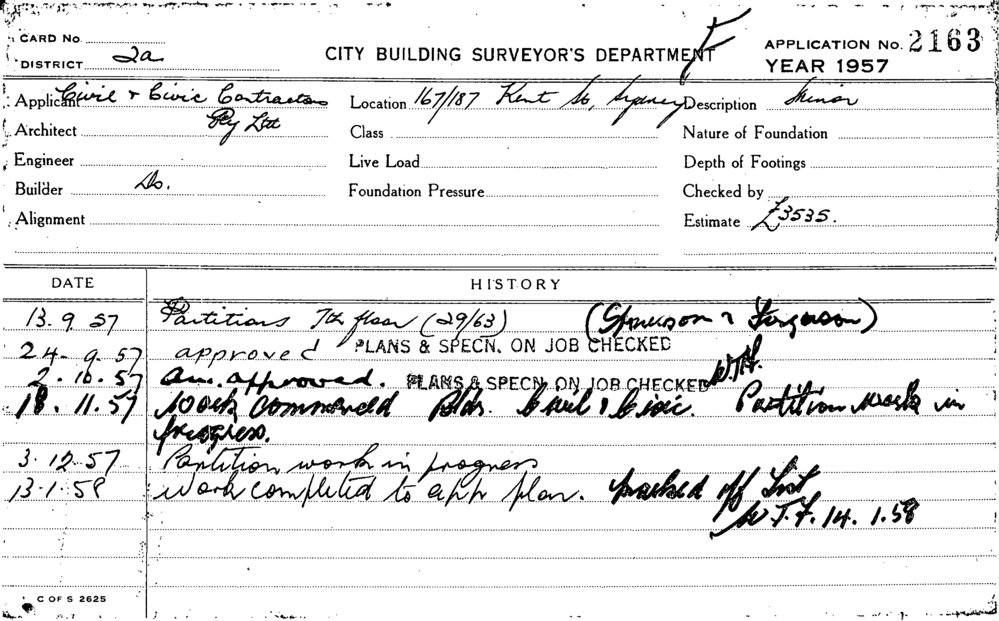 CARD No.
DISTRICT 2a
CITY BUILDING SURVEYOR'S DEPARTMENT
APPLICATION No. 2163
YEAR 1957
Applicant Civil & Civic Contractors
Pty Ltd
Location 167/187 Kent St, Sydney
Description Minor
Architect
Class
Nature of Foundation
Engineer
Live Load
Depth of Footings
Builder Do.
Foundation Pressure
Checked by
Alignment
Estimate £3535.
DATE HISTORY
13.9.57 Partitions 7th floor (29/63) (Spruson & Ferguson)
24.9.57 approved PLANS & SPECN. ON JOB CHECKED
2.10.57 am. approved. PLANS & SPECN. ON JOB CHECKED W.T.F.
18.11.57 Work commenced Bldr. Civil & Civic. Partition work in
progress.
3.12.57 Partition work in progress
13.1.58 Work completed to app plan. Marked off List
W.T.F. 14.1.58
C OF S 2625